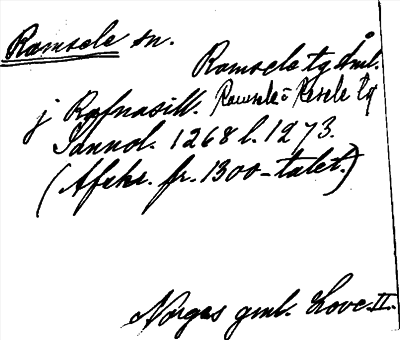 Ramsele sn.
Ramsele tg Åml.
Ramsele o Resele tg
j Rafnasill.
Sannol. 1268 l. 1273.
(Afskr. fr. 1300-talet.)
Norges gml. Love. II.